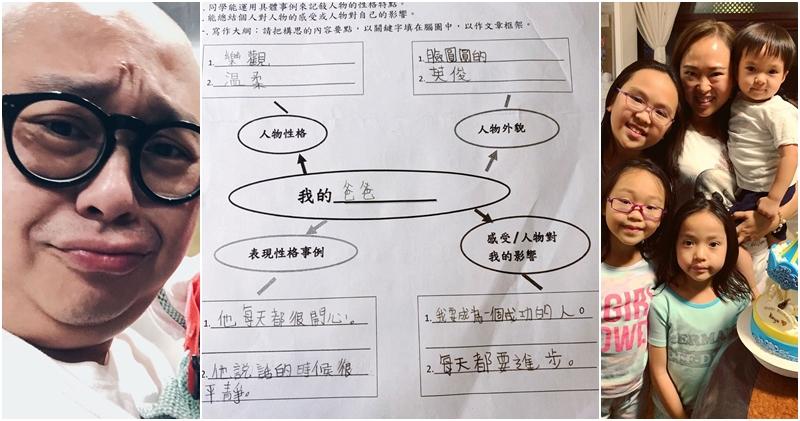 .同學能運用具體事例來記敍人物的性格特點。
.能總結個人對人物的感受或人物對自己的影響。
、寫作大綱：請把構思的內容要點，以關鍵字填在腦圖中，以作文章框架。
1. 樂觀
2. 溫柔
1. 臉圓圓的
2. 英俊
人物性格
人物外貌
我的爸爸
表現性格事例
感受/人物對
我的影響
1. 他每天都很開心。
2. 他說話的時候很
平靜。
1. 我要成為一個成功的人。
2. 每天都要進步。
GIRL
POWER
GERMAN